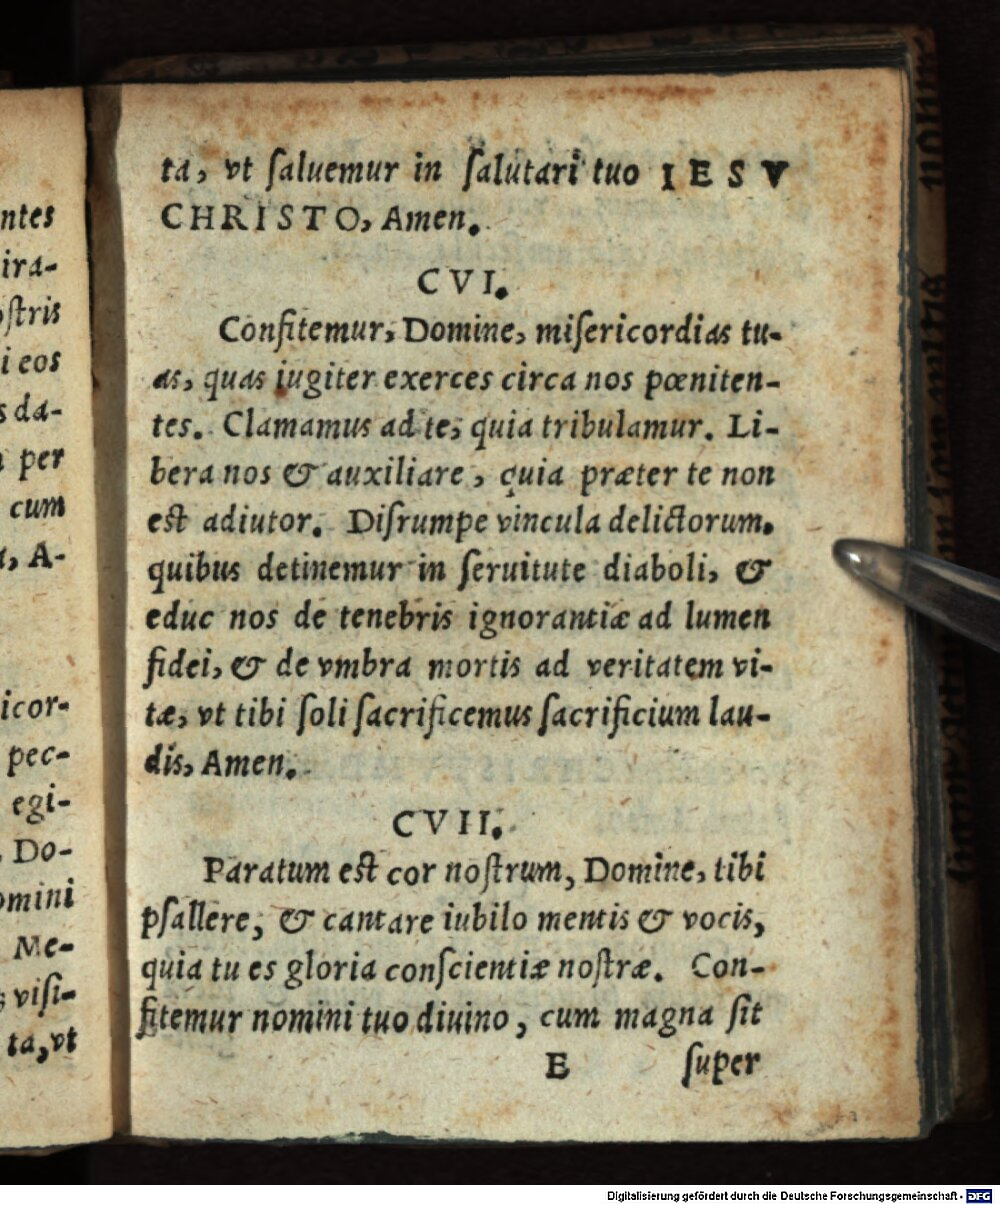 ntes
ira-
ſtris
i eos
s da-
per
cum
A-
icor-
pec-
egi-
Do-
omini
Me-
viſi-
ta, vt
ta, vt ſaluemur in ſalutari tuo IESV
CHRISTO, Amen.
CVI.
Confitemur, Domine, miſericordias tu-
as, quas iugiter exerces circa nos pœniten-
tes. Clamamus ad te, quia tribulamur. Li-
bera nos & auxiliare, quia præter te non
est adiutor. Diſrumpe vincula delictorum,
quibus detinemur in ſeruitute diaboli, &
educ nos de tenebris ignorantiæ ad lumen
fidei, & de vmbra mortis ad veritatem vi-
tæ, vt tibi ſoli ſacrificemus ſacrificium lau-
dis, Amen.
CVII.
Paratum est cor noſtrum, Domine, tibi
pſallere, & cantare iubilo mentis & vocis,
quia tu es gloria conſcientiæ noſtræ. Con-
fitemur nomini tuo diuino, cum magna ſit
E ſuper
Digitalisierung gefördert durch die Deutsche Forschungsgemeinschaft - DFG